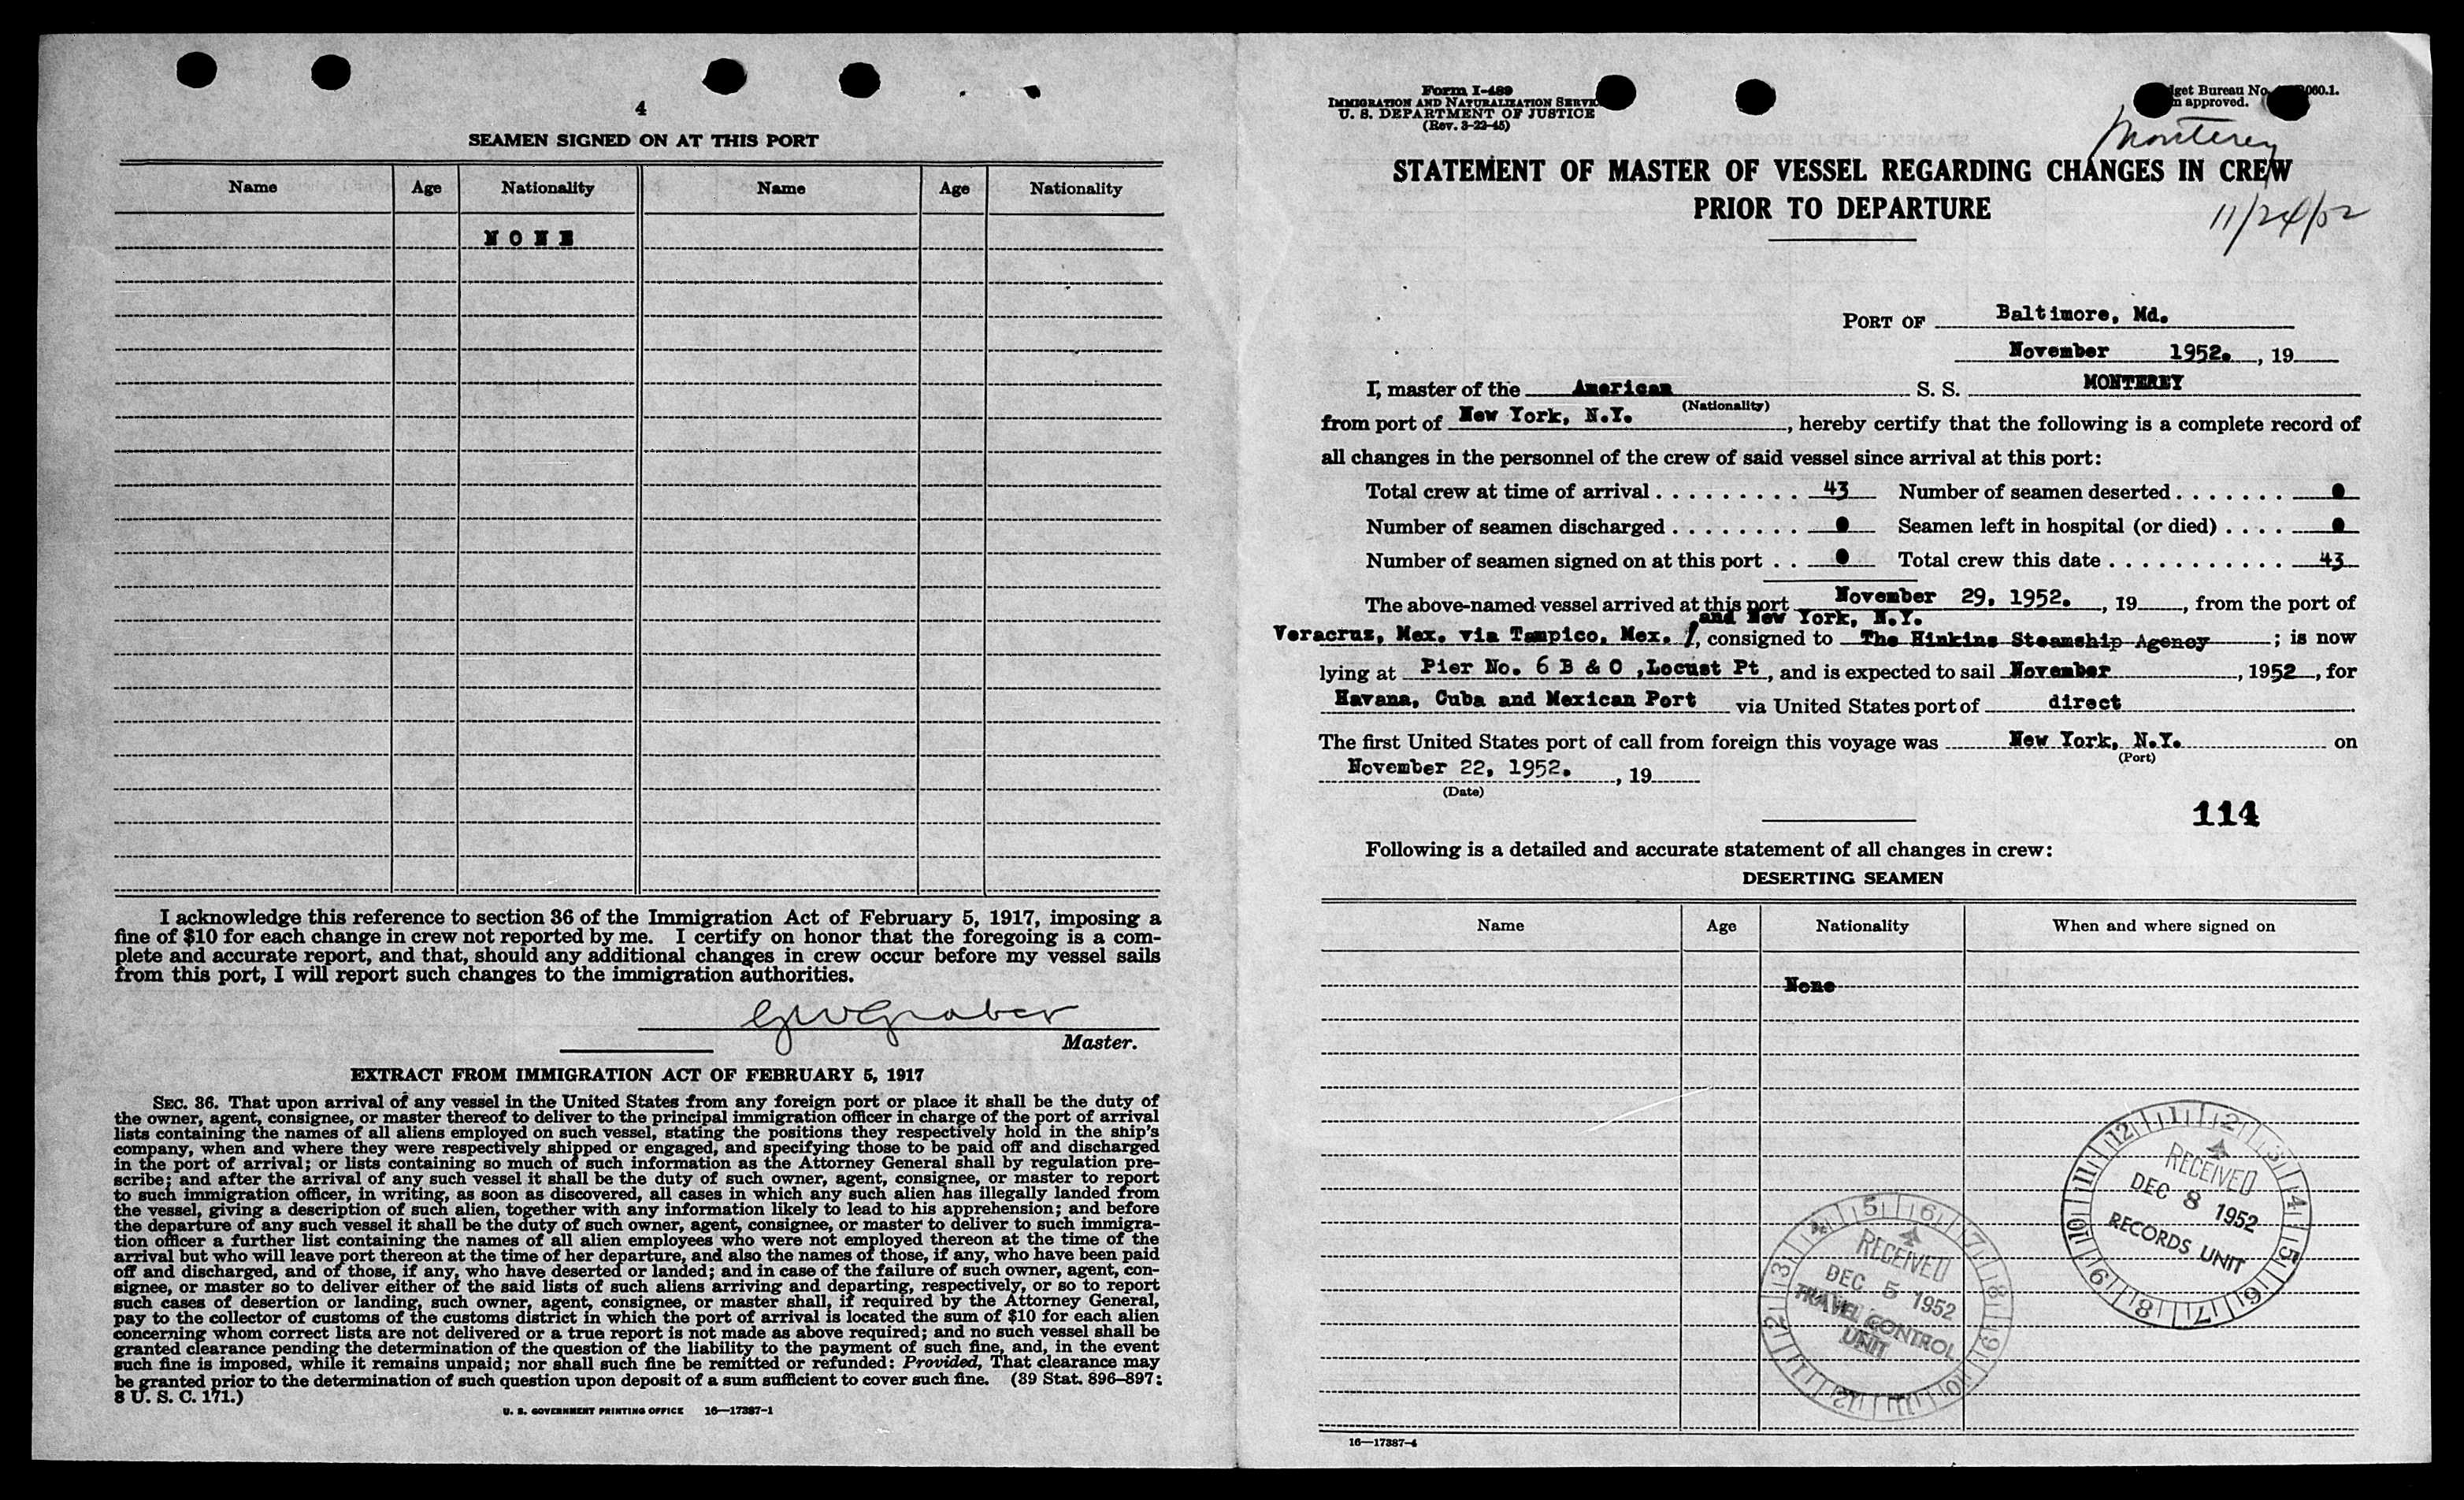 4
SEAMEN SIGNED ON AT THIS PORT
Name Age Nationality Name Age Nationality
NONE
I acknowledge this reference to section 36 of the Immigration Act of February 5, 1917, imposing a
fine of $10 for each change in crew not reported by me. I certify on honor that the foregoing is a com-
plete and accurate report, and that, should any additional changes in crew occur before my vessel sails
from this port, I will report such changes to the immigration authorities.
GWGraber
Master.
EXTRACT FROM IMMIGRATION ACT OF FEBRUARY 5, 1917
SEC. 36. That upon arrival of any vessel in the United States from any foreign port or place it shall be the duty of
the owner, agent, consignee, or master thereof to deliver to the principal immigration officer in charge of the port of arrival
lists containing the names of all aliens employed on such vessel, stating the positions they respectively hold in the ship's
company, when and where they were respectively shipped or engaged, and specifying those to be paid off and discharged
in the port of arrival; or lists containing so much of such information as the Attorney General shall by regulation pre-
scribe; and after the arrival of any such vessel it shall be the duty of such owner, agent, consignee, or master to report
to such immigration officer, in writing, as soon as discovered, all cases in which any such alien has illegally landed from
the vessel, giving a description of such alien, together with any information likely to lead to his apprehension; and before
the departure of any such vessel it shall be the duty of such owner, agent, consignee, or master to deliver to such immigra-
tion officer a further list containing the names of all alien employees who were not employed thereon at the time of the
arrival but who will leave port thereon at the time of her departure, and also the names of those, if any, who have been paid
off and discharged, and of those, if any, who have deserted or landed; and in case of the failure of such owner, agent, con-
signee, or master so to deliver either of the said lists of such aliens arriving and departing, respectively, or so to report
such cases of desertion or landing, such owner, agent, consignee, or master shall, if required by the Attorney General,
pay to the collector of customs of the customs district in which the port of arrival is located the sum of $10 for each alien
concerning whom correct lists are not delivered or a true report is not made as above required; and no such vessel shall be
granted clearance pending the determination of the question of the liability to the payment of such fine, and, in the event
such fine is imposed, while it remains unpaid; nor shall such fine be remitted or refunded: Provided, That clearance may
be granted prior to the determination of such question upon deposit of a sum sufficient to cover such fine. (39 Stat. 896–897;
8 U. S. C. 171.)
U. S. GOVERNMENT PRINTING OFFICE 16—17387-1
Form I-489
IMMIGRATION AND NATURALIZATION SERVIC
U. S. DEPARTMENT OF JUSTICE
(Rev. 3-22-45)
get Bureau No. 060.1.
approved.
Monterey
STATEMENT OF MASTER OF VESSEL REGARDING CHANGES IN CREW
PRIOR TO DEPARTURE
11/24/52
PORT OF Baltimore, Md.
November 1952. , 19
I, master of the American S. S. MONTEREY
(Nationality)
from port of New York, N.Y. , hereby certify that the following is a complete record of
all changes in the personnel of the crew of said vessel since arrival at this port:
Total crew at time of arrival . . . . . . . . . 43 Number of seamen deserted . . . . . . . 0
Number of seamen discharged . . . . . . . . 0 Seamen left in hospital (or died) . . . . 0
Number of seamen signed on at this port . . 0 Total crew this date . . . . . . . . . . . 43
The above-named vessel arrived at this port November 29, 1952. , 19 , from the port of
and New York, N.Y.
Veracruz, Mex. via Tampico, Mex. /, consigned to The Hinkins Steamship Agency ; is now
lying at Pier No. 6 B & O ,Locust Pt , and is expected to sail November , 1952 , for
Havana, Cuba and Mexican Port via United States port of direct
The first United States port of call from foreign this voyage was New York, N.Y. on
(Port)
November 22, 1952. , 19
(Date)
114
Following is a detailed and accurate statement of all changes in crew:
DESERTING SEAMEN
Name Age Nationality When and where signed on
None
RECEIVED
DEC 8 1952
RECORDS UNIT
1 2 3 4 5 6 7 8 9 10 11 12
RECEIVED
DEC 5 1952
TRAVEL CONTROL
UNIT
1 2 3 4 5 6 7 8 9 10 11 12
16—17387-4